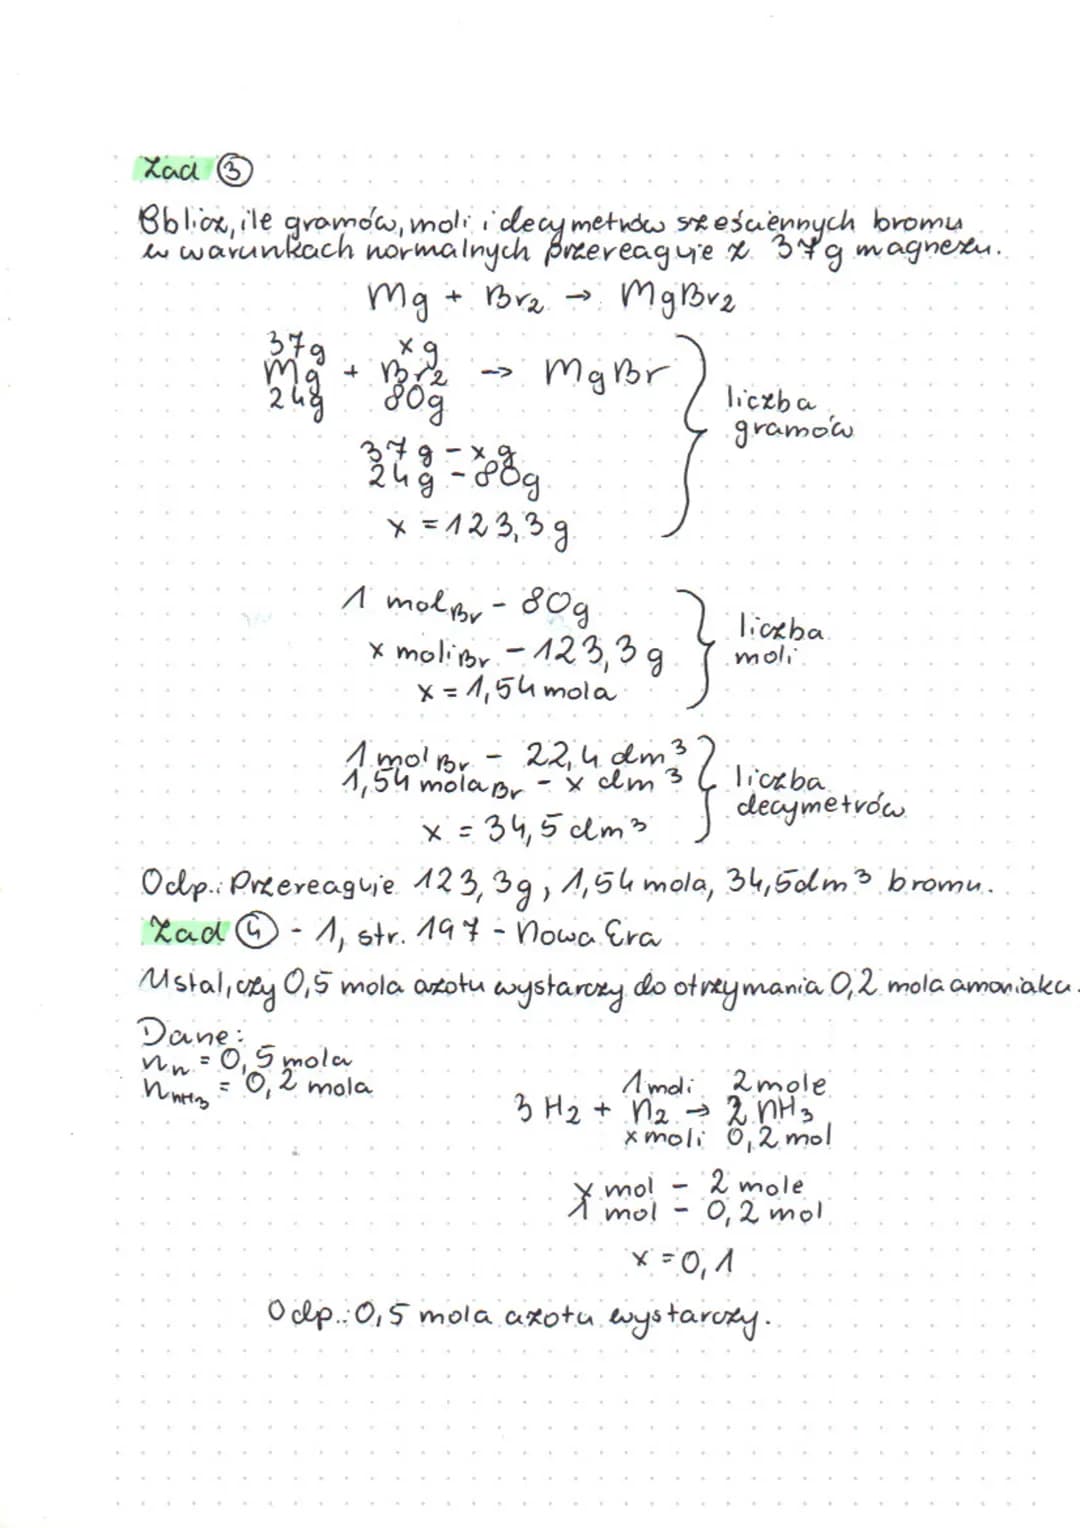 Zad ③
Oblicz, ile gramów, moli i decymetrów sześciennych bromu
w warunkach normalnych przereaguje z 37g magnezu.
Mg + Br₂ → MgBr₂
37g xg
Mg + Br₂ → MgBr
24g 80g
liczba
gramów
37g - xg
24g - 80g
x = 123,3g
1 mol Br - 80g
x moli Br - 123,3g
x = 1,54 mola
liczba
moli
1 mol Br - 22,4 dm³
1,54 mola Br - x dm³
x = 34,5 dm³
liczba
decymetrów
Odp.: Przereaguje 123,3g, 1,54 mola, 34,5dm³ bromu.
Zad ④ - 1, str. 197 - Nowa Era
Ustal, czy 0,5 mola azotu wystarczy do otrzymania 0,2 mola amoniaku.
Dane:
nₙ = 0,5 mola
n NH₃ = 0,2 mola
1 moli 2 mole
3 H₂ + N₂ → 2 NH₃
x moli 0,2 mol
x mol - 2 mole
1 mol - 0,2 mol
x = 0,1
Odp.: 0,5 mola azotu wystarczy.